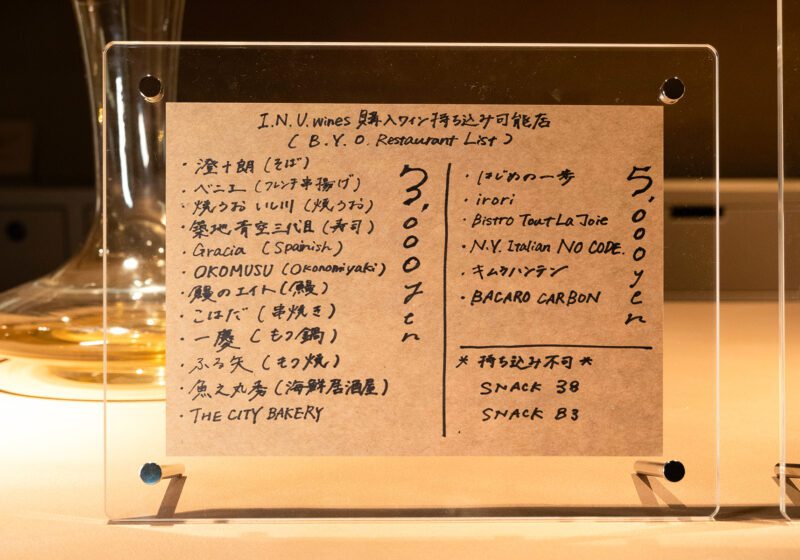 I.N.U. wines 購入ワイン持ち込み可能店
( B.Y.O. Restaurant List )
・澄十朗 (そば)
・ベニエ (フレンチ串揚げ)
・焼うおいし川 (焼うお)
・築地青空三代目 (寿司)
・Gracia (Spainish)
・OKOMUSU (Okonomiyaki)
・鰻のエイト (鰻)
・こはだ (串焼き)
・一慶 (もつ鍋)
・ふる矢 (もつ焼)
・魚之丸秀 (海鮮居酒屋)
・THE CITY BAKERY
3,000yen
・はじめの一歩
・irori
・Bistro Tout La Joie
・N.Y. Italian NO CODE.
・キムカハンテン
・BACARO CARBON
5,000yen
＊持ち込み不可＊
SNACK 38
SNACK 83